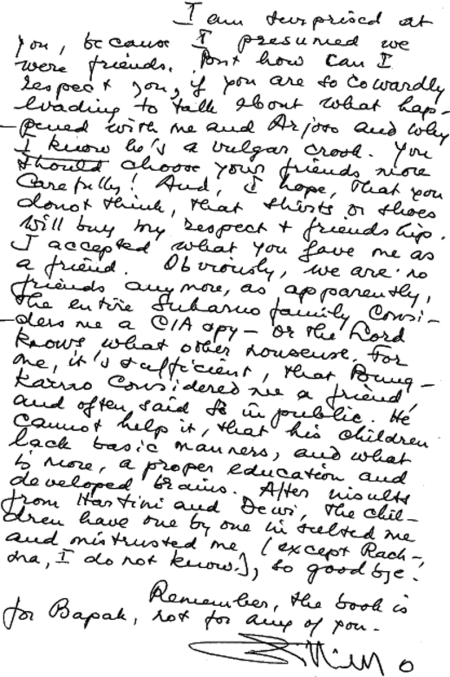 I am surprised at
you, because I presumed we
were friends. But how can I
respect you, if you are so cowardly
evading to talk about what hap-
-pened with me and Arjoso and why
I know he's a vulgar crook. You
should choose your friends more
carefully! And, I hope, that you
donot think, that shirts or shoes
will buy my respect + friendship.
I accepted what you gave me as
a friend. Obviously, we are no
friends anymore, as apparently,
the entire Sukarno family consi-
-ders me a CIA spy - or the Lord
knows what other nonsense. For
me, it's sufficient, that Bung-
Karno considered me a friend,
and often said so in public. He
cannot help it, that his children
lack basic manners, and what
is more, a proper education and
developed brains. After insults
from Hartini and Dewi, the chil-
dren have one by one insulted me
and mistrusted me, (except Rach-
ma, I do not know.), so good bye.
Remember, the book is
for Bapak, not for any of you.